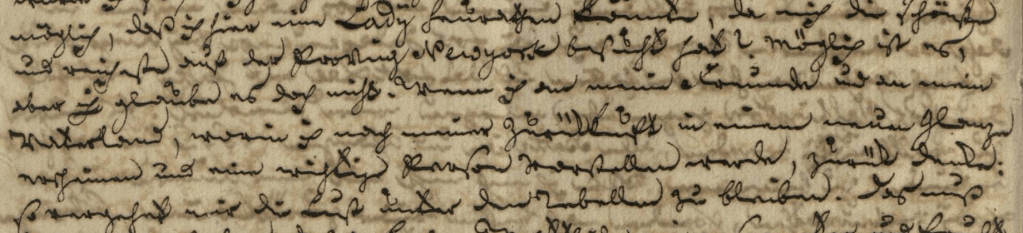 möglich, daß ich hier eine Lady heurathen könnte, da mich die schönste
und reichste auß der Provinz Newyork besucht hat? Möglich ist es,
aber ich glaube es doch nicht. Wenn ich an meine Freunde und an mein
Vaterland, worin ich nach meiner Zurückkunft in einem neuen Glanze
erscheinen und eine wichtige Person vorstellen werde, zurück denke:
so vergehet mir die Lust unter den Rebellen zu bleiben. Das muß